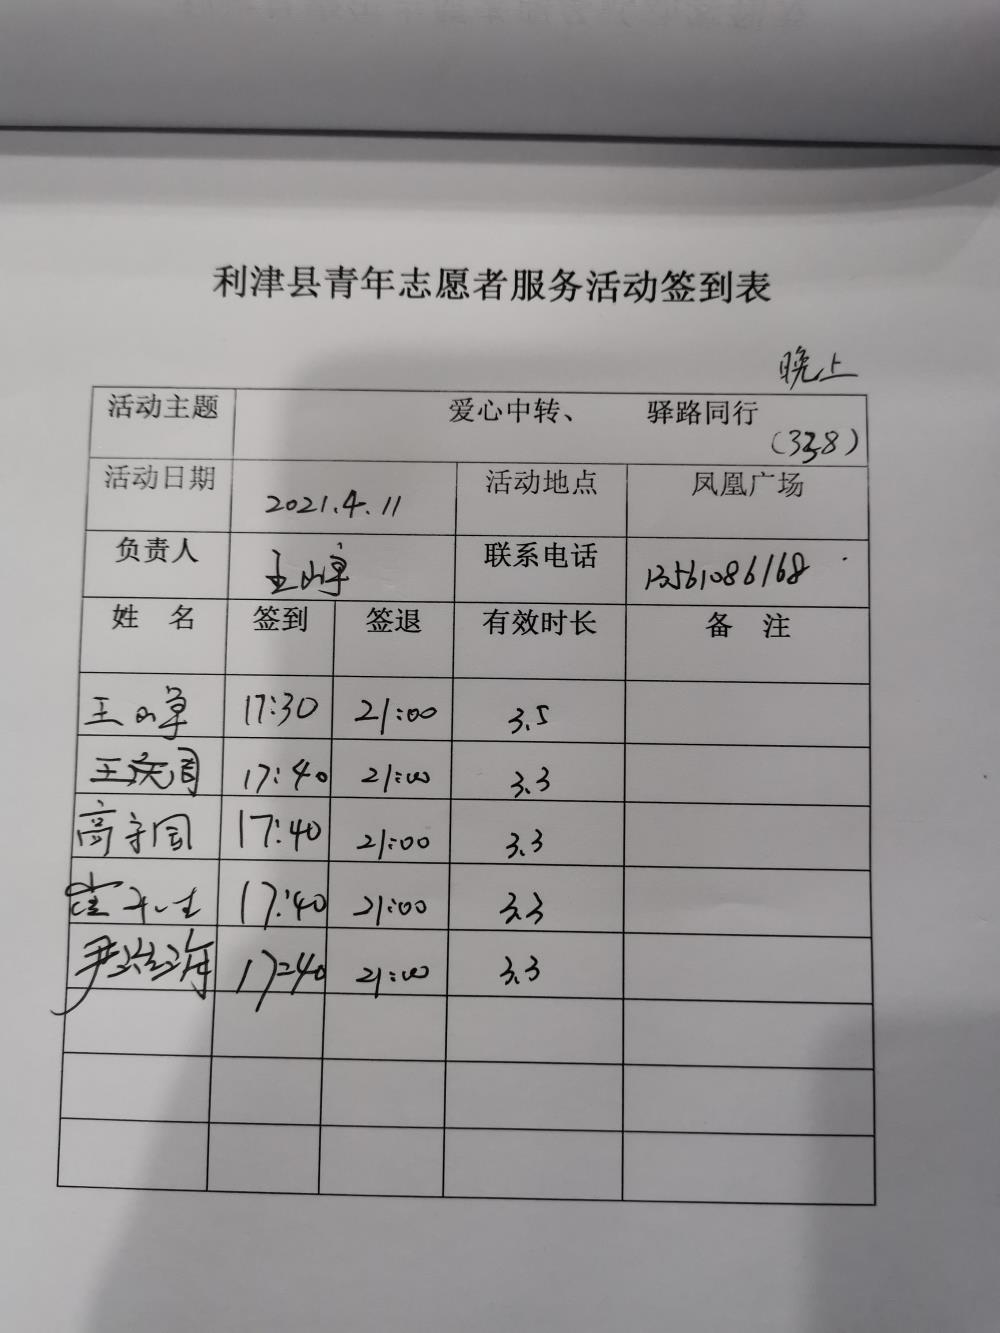 利津县青年志愿者服务活动签到表
晚上
活动主题 爱心中转、 驿路同行
(338)
活动日期 2021.4.11 活动地点 凤凰广场
负责人 联系电话 13561086168
姓 名 签到 签退 有效时长 备 注
王 17:30 21:00 3.5
王 17:40 21:00 3.3
高守国 17:40 21:00 3.3
17:40 21:00 3.3
尹 17:40 21:00 3.3